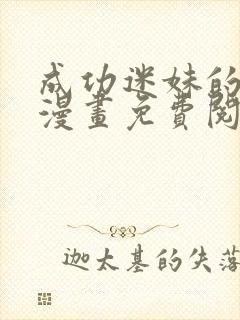 成功迷妹的
漫畫免費閱
迦太基的失落